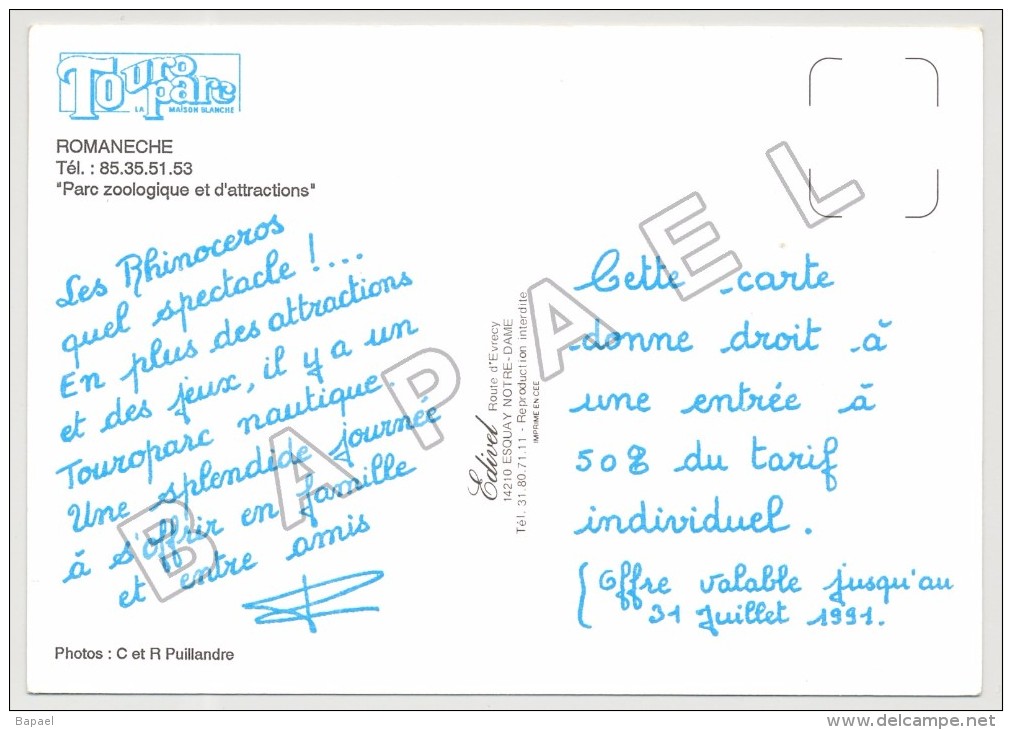 Touro
parc
LA MAISON BLANCHE
ROMANECHE
Tél. : 85.35.51.53
"Parc zoologique et d'attractions"
Les Rhinoceros
quel spectacle !....
En plus des attractions
et des jeux, il y a un
Touroparc nautique.
Une splendide journée
à s'offrir en famille
et entre amis
Photos : C et R Puillandre
Edivel Route d'Evrecy
14210 ESQUAY NOTRE-DAME
Tél. 31.80.71.11 - Reproduction interdite
IMPRIMÉ EN CEE
Cette carte
donne droit à
une entrée à
50% du tarif
individuel.
(Offre valable jusqu'au
31 Juillet 1991.
BAPAEL
Bapael
www.delcampe.net